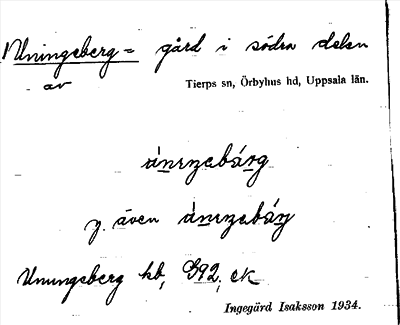 Uningsberg = gård i södra delen
av Tierps sn, Örbyhus hd, Uppsala län.
y. även
Unungsberg hb, G92, ek
Ingegärd Isaksson 1934.